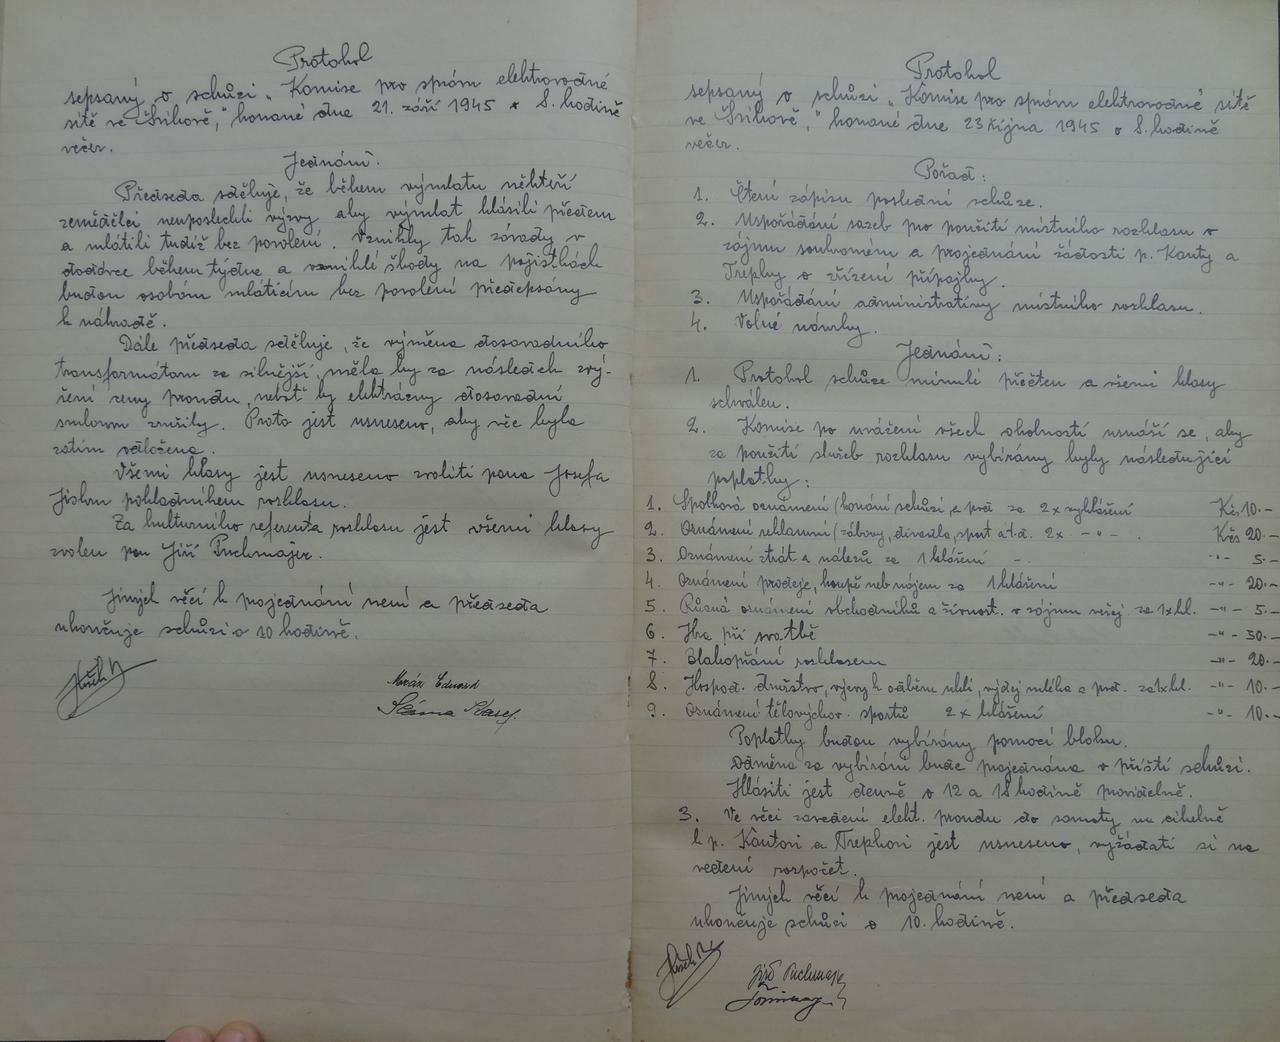 Protokol
sepsaný o schůzi „Komise pro správu elektrovodné
sítě ve Šrihově," konané dne 21. září 1945 o 8. hodině
večer.
Jednání.
Předseda sděluje, že během výmlatu někteří
zemědělci neuposlechli výzvy aby výmlat hlásili předem
a mlátili tudíž bez povolení. Vznikly tak závady v
dodávce během týdne a vzniklé škody na pojistkách
budou osobám mlátícím bez povolení předepsány
k náhradě.
Dále předseda sděluje, že výměna dosavadního
transformátoru za silnější, měla by za následek zvý-
šení ceny proudu, neboť by elektrárny dosavadní
smlouvu zrušily. Proto jest usneseno, aby věc byla
zatím odložena.
Všemi hlasy jest usneseno zvoliti pana Josefa
pokladníkem rozhlasu.
Za kulturního referenta rozhlasu jest všemi hlasy
zvolen pan Jiří Puchmajer.
Jiných věcí k projednání není a předseda
ukončuje schůzi o 10 hodině.
Eduard
Protokol
sepsaný o schůzi „Komise pro správu elektrovodné sítě
ve Šrihově," konané dne 23 října 1945 o 8. hodině
večer.
Pořad:
1. Čtení zápisu poslední schůze.
2. Uspořádání sazeb pro použití místního rozhlasu v
zájmu soukromém a projednání žádosti p. Kanty a
Trepky o zřízení přípojky.
3. Uspořádání administrativy místního rozhlasu.
4. Volné návrhy.
Jednání:
1. Protokol schůze minulé přečten a všemi hlasy
schválen.
2. Komise po uvážení všech okolností usnáší se, aby
za použití služeb rozhlasu vybírány byly následující
poplatky:
1. Spolková oznámení /konání schůzí a pod. za 2x vyhlášení Kčs 10.-
2. Oznámení reklamní /zábavy, divadla, sport a t.d. 2x -"- . Kčs 20.-
3. Oznámení ztrát a nálezů za 1 hlášení -"- 5.-
4. Oznámení prodeje, koupě neb nájem za 1 hlášení -"- 20.-
5. Různá oznámení obchodníků a živnost. v zájmu veřej. za 1x hl. -"- 5.-
6. Hra při svatbě -"- 50.-
7. Blahopřání rozhlasem -"- 20.-
8. Hospod. družstvo, výzvy k odběru uhlí, výdej mléka a pod. za 1x hl. -"- 10.-
9. Oznámení tělovýchov. sportů 2x hlášení -"- 10.-
Poplatky budou vybírány pomocí bloku.
Odměna za vybírání bude projednána v příští schůzi.
Hlásiti jest denně o 12 a 18 hodině pravidelně.
3. Ve věci zavedení elekt. proudu do samoty na cihelně
k p. Kantovi a Trepkovi jest usneseno, vyžádati si na
vedení rozpočet.
Jiných věcí k projednání není a předseda
ukončuje schůzi o 10. hodině.
Jiří Puchmajer